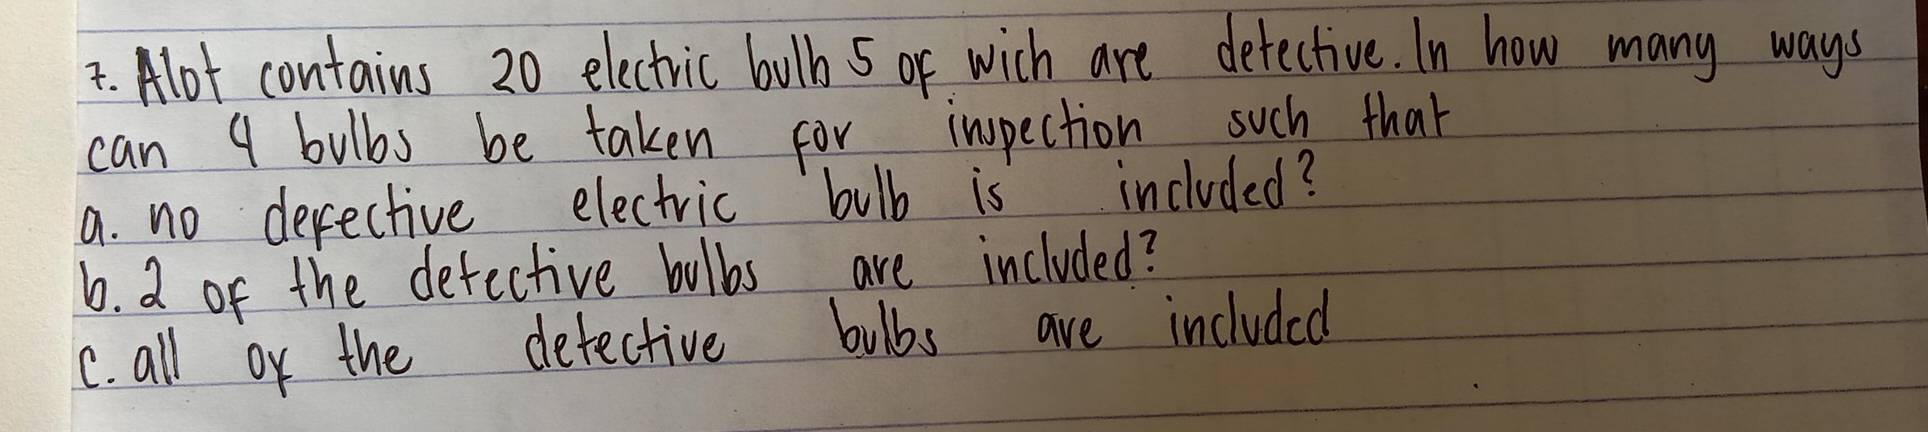 7. Alot contains 20 electric bulb 5 of wich are defective. In how many ways
can 4 bulbs be taken for inspection such that
a. no defective electric bulb is included?
b. 2 of the defective bulbs are included?
c. all of the defective bulbs are included